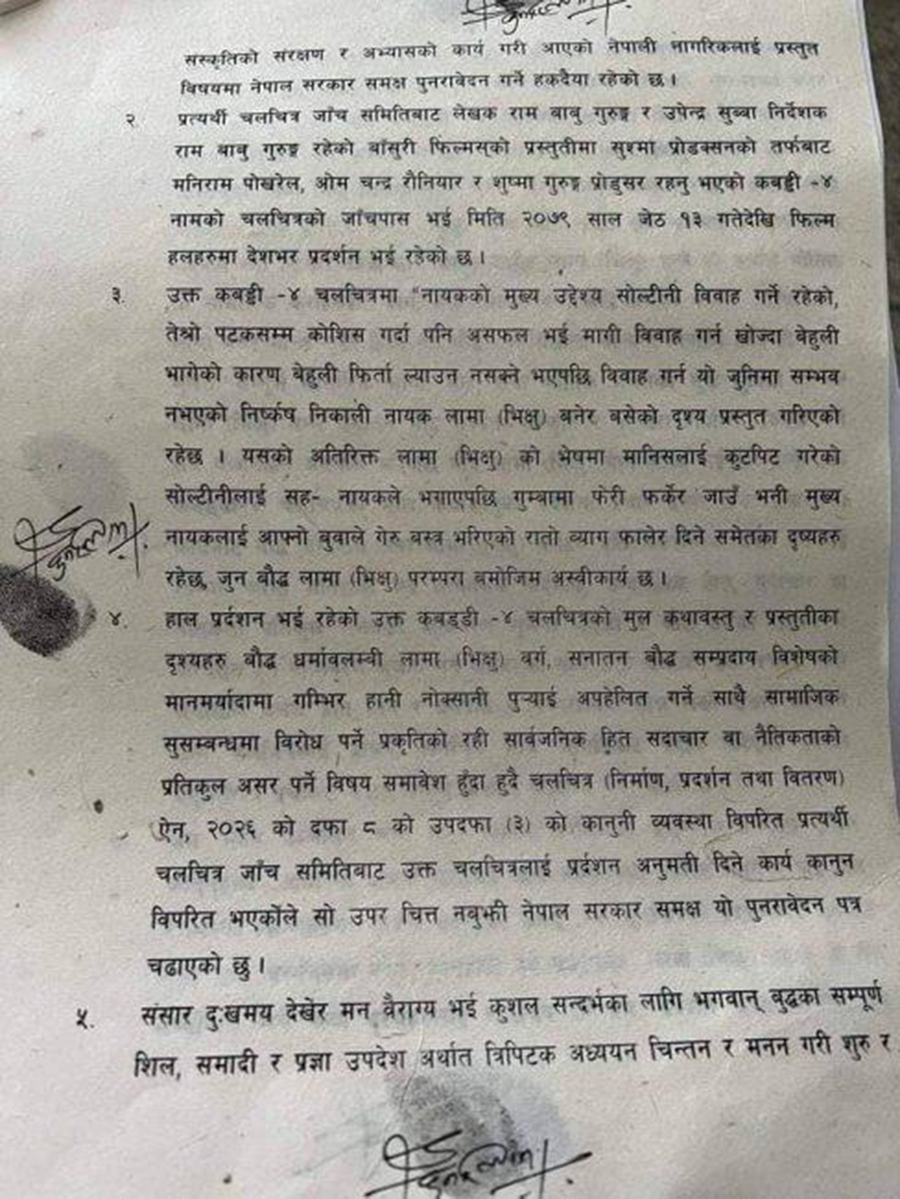 संस्कृतिको संरक्षण र अभ्यासको कार्य गरी आएको नेपाली नागरिकलाई प्रस्तुत
विषयमा नेपाल सरकार समक्ष पुनरावेदन गर्ने हकदैया रहेको छ ।
२. प्रत्यर्थी चलचित्र जाँच समितिबाट लेखक राम बाबु गुरुङ्ग र उपेन्द्र सुब्बा निर्देशक
राम बाबु गुरुङ्ग रहेको बाँसुरी फिल्मस्को प्रस्तुतीमा सुश्मा प्रोडक्सनको तर्फबाट
मनिराम पोखरेल, ओम चन्द्र रौनियार र शुष्मा गुरुङ्ग प्रोडुसर रहनु भएको कबड्डी -४
नामको चलचित्रको जाँचपास भई मिति २०७९ साल जेठ १३ गतेदेखि फिल्म
हलहरुमा देशभर प्रदर्शन भई रहेको छ ।
३. उक्त कबड्डी -४ चलचित्रमा "नायकको मुख्य उद्देश्य सोल्टीनी विवाह गर्ने रहेको,
तेश्रो पटकसम्म कोशिस गर्दा पनि असफल भई मागी विवाह गर्न खोज्दा बेहुली
भागेको कारण बेहुली फिर्ता ल्याउन नसक्ने भएपछि विवाह गर्न यो जुनिमा सम्भव
नभएको निर्ष्कष निकाली नायक लामा (भिक्षु) बनेर बसेको दृश्य प्रस्तुत गरिएको
रहेछ । यसको अतिरिक्त लामा (भिक्षु) को भेषमा मानिसलाई कुटपिट गरेको
सोल्टीनीलाई सह- नायकले भगाएपछि गुम्बामा फेरी फर्केर जाउँ भनी मुख्य
नायकलाई आफ्नो बुवाले गेरु बस्त्र भरिएको रातो व्याग फालेर दिने समेतका दृष्यहरु
रहेछ, जुन बौद्ध लामा (भिक्षु) परम्परा बमोजिम अस्वीकार्य छ ।
४. हाल प्रर्दशन भई रहेको उक्त कबड्डी -४ चलचित्रको मुल कथावस्तु र प्रस्तुतीका
दृश्यहरु बौद्ध धर्मावलम्बी लामा (भिक्षु) वर्ग, सनातन बौद्ध सम्प्रदाय विशेषको
मानमर्यादामा गम्भिर हानी नोक्सानी पुर्‍याई अपहेलित गर्ने साथै सामाजिक
सुसम्बन्धमा विरोध पर्ने प्रकृतिको रही सार्वजनिक हित सदाचार वा नैतिकताको
प्रतिकुल असर पर्ने विषय समावेश हुँदा हुदै चलचित्र (निर्माण, प्रदर्शन तथा वितरण)
ऐन, २०२६ को दफा ८ को उपदफा (३) को कानुनी व्यवस्था विपरित प्रत्यर्थी
चलचित्र जाँच समितिबाट उक्त चलचित्रलाई प्रर्दशन अनुमती दिने कार्य कानुन
विपरित भएकोले सो उपर चित्त नबुझी नेपाल सरकार समक्ष यो पुनरावेदन पत्र
चढाएको छु ।
५. संसार दुःखमय देखेर मन वैराग्य भई कुशल सन्दर्भका लागि भगवान् बुद्धका सम्पूर्ण
शिल, समादी र प्रज्ञा उपदेश अर्थात त्रिपिटक अध्ययन चिन्तन र मनन गरी शुरु र